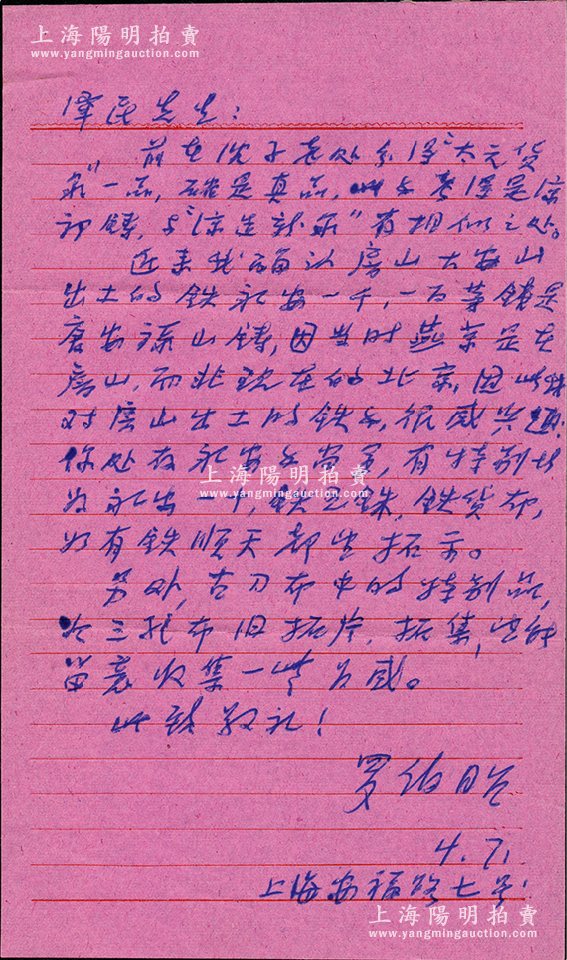 上海陽明拍賣
www.yangmingauction.com
泽民先生:
前在沈子老处分得"大元货
泉"一品,确是真品,此乃是
初铸,与"凉造新泉"有相似之处。
近来我确认房山大安山
出土的铁永安一千,一百等钱是
唐安禄山铸,因当时燕京是在
房山,而非现在的北京,因此
对房山出土的铁钱,很感兴趣,
你处存永安钱尚多,有特别
为永安一千铁五铢,铁货布,
如有铁顺天都望拓示。
上海陽明拍賣
www.yangmingauction.com
另外,古刀布中的特别品,
如三孔布旧拓片,拓集,望能
留意收集一些为感。
此致敬礼!
罗伯昭
4.7.
上海安福路七号.
上海陽明拍賣
www.yangmingauction.com